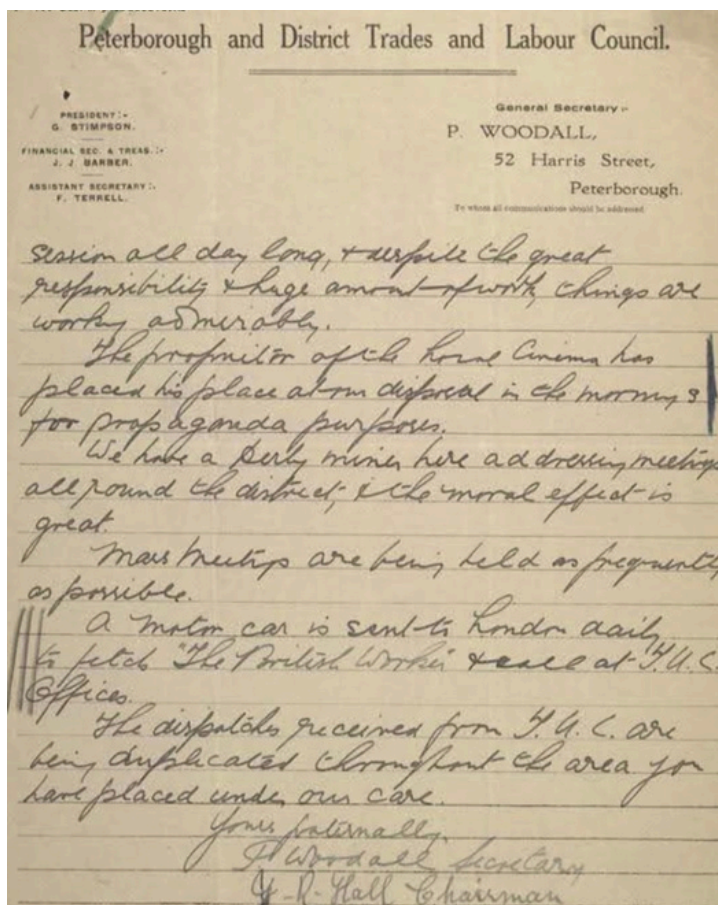 Peterborough and District Trades and Labour Council.
PRESIDENT:-
G. STIMPSON.
FINANCIAL SEC. & TREAS.:-
J. J. BARBER.
ASSISTANT SECRETARY:-
F. TERRELL.
General Secretary:-
P. WOODALL,
52 Harris Street,
Peterborough.
To whom all communications should be addressed
session all day long, & despite the great
responsibility & huge amount of work, things are
working admerably.
The proprietor of the local Cinema has
placed his place at our disposal in the mornings
for propaganda purposes.
We have a Derby miner here addressing meetings
all round the district, & the moral effect is
great.
Mass Meetings are being held as frequently
as possible.
A motor car is sent to London daily
to fetch "The British Worker" & call at T.U.C.
Offices.
The dispatches received from T.U.C. are
being duplicated throughout the area you
have placed under our care.
Yours fraternally,
P Woodall Secretary
Hall Chairman